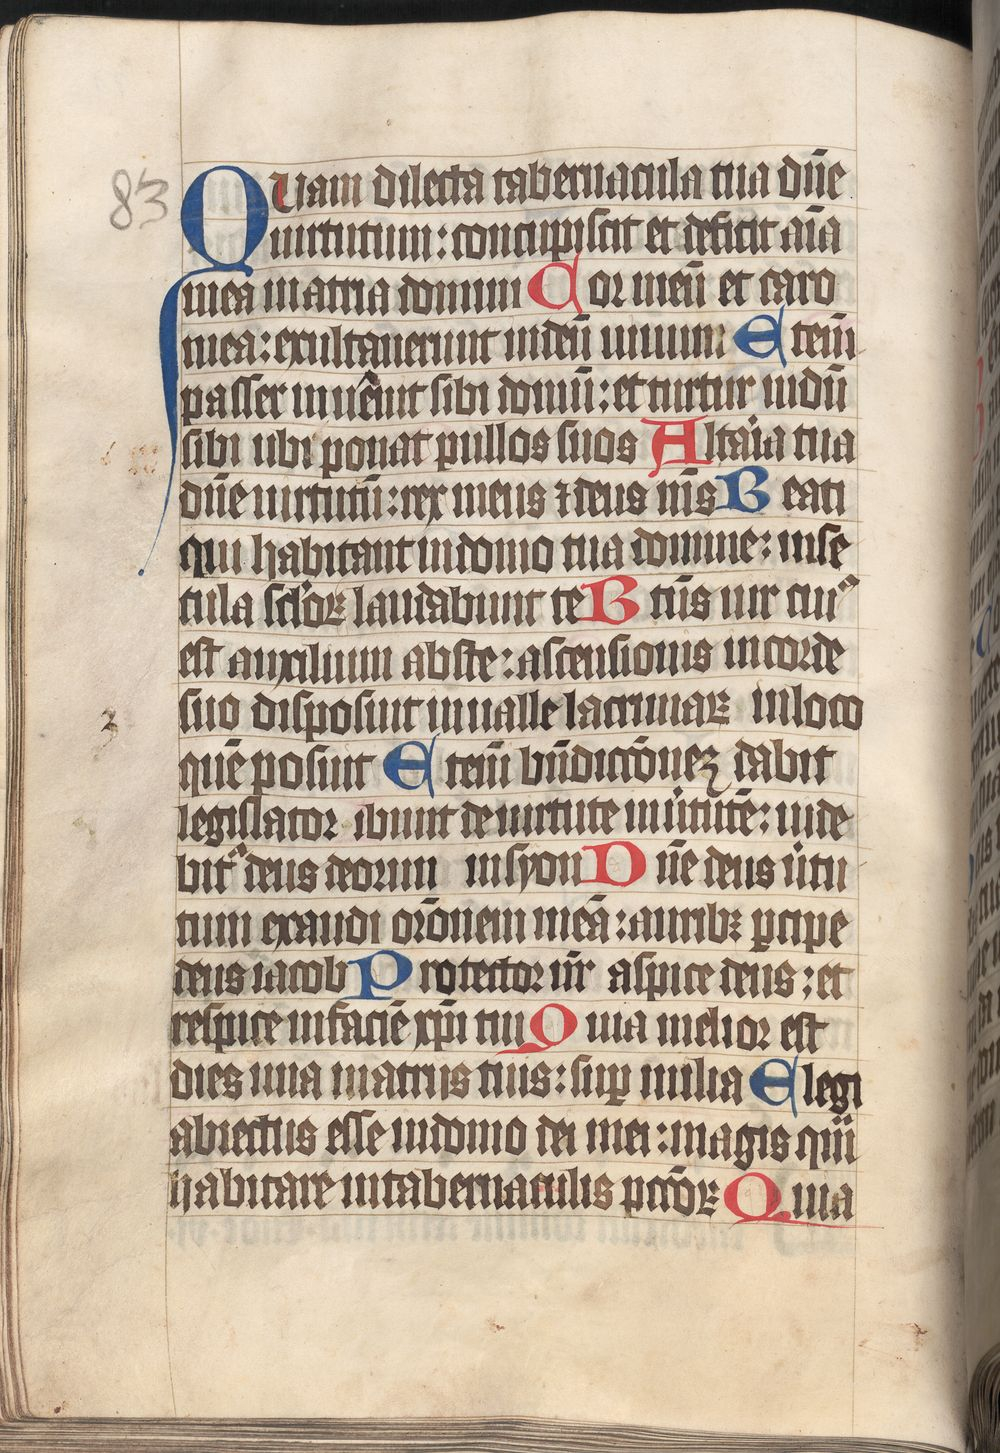 83
QUam dilecta tabernacula tua dn̄e
uirtutum: concupiscit et deficit aīa
mea in atria domini Cor meū et caro
mea: exultauerunt in deū uiuum Etem̄
passer inuēnit sibi domū: et turtur nidū
sibi ubi ponat pullos suos Altaīa tua
dn̄e uirtutū: rex meus ⁊ deus m̄s Beati
qui habitant in domo tua domine: in se
cula sc̄loꝝ laudabunt te Bt̄us uir cuiꝰ
est auxilium abs te: ascensionis in corde
suo disposuit in ualle lacrimaꝝ in loco
quē posuit Etem̄ bn̄dictōneꝫ dabit
legislator ibunt de uirtute in ūtutē: uide
bit᷑ deus deorum in syon Dn̄e deus ūtu
tum exaudi orōnem meā: auribꝫ ꝑcipe
deus iacob Protector nr̄ aspice deus: et
respice in faciē xp̄i tui Quia melior est
dies una in atriis tuis: suꝑ milia Elegi
abiectus esse in domo dei mei: magis qm̄
habitare in tabernaculis pc̄toꝝ Quia